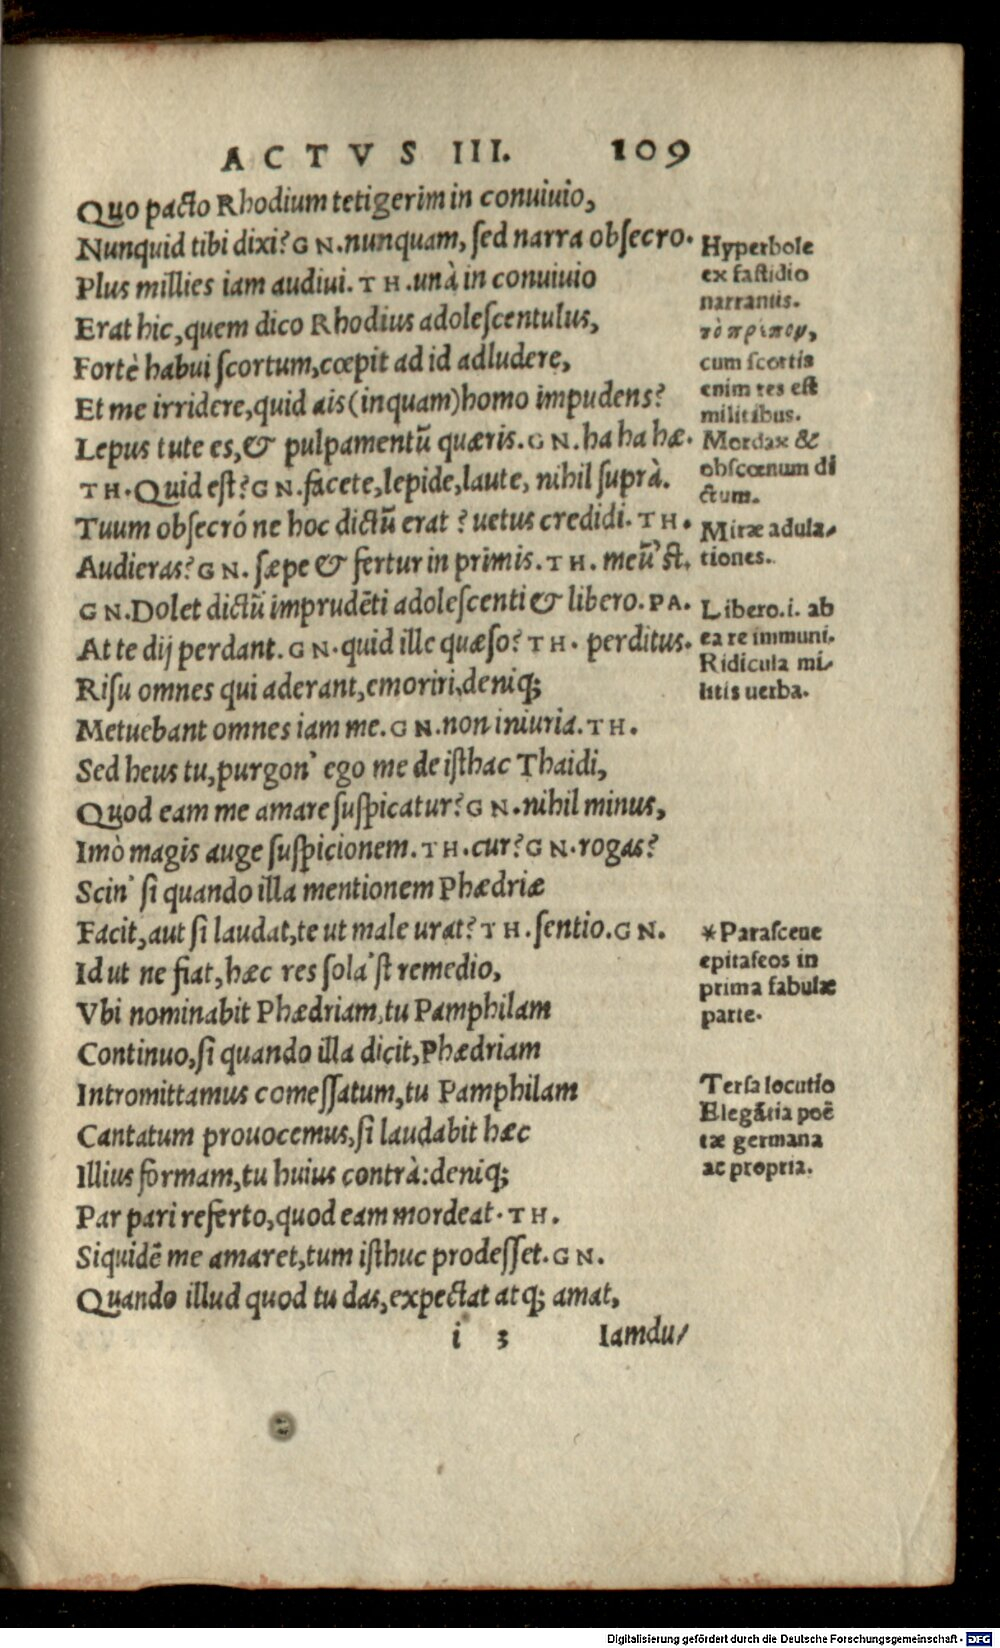 ACTVS III. 109
Quo pacto Rhodium tetigerim in conuiuio,
Nunquid tibi dixi? GN. nunquam, sed narra obsecro.
Plus millies iam audiui. TH. unà in conuiuio
Erat hic, quem dico Rhodius adolescentulus,
Fortè habui scortum, cœpit ad id adludere,
Et me irridere, quid ais (inquam) homo impudens?
Lepus tute es, & pulpamentū quæris. GN. ha ha hæ.
TH. Quid est? GN. facete, lepide, laute, nihil suprà.
Tuum obsecró ne hoc dictū erat? uetus credidi. TH.
Audieras? GN. sæpe & fertur in primis. TH. meū'st.
GN. Dolet dictū imprudēti adolescenti & libero. PA.
At te dij perdant. GN. quid ille quæso? TH. perditus.
Risu omnes qui aderant, emoriri, deniq;
Metuebant omnes iam me. GN. non iniuria. TH.
Sed heus tu, purgon' ego me de isthac Thaidi,
Quod eam me amare suspicatur? GN. nihil minus,
Imò magis auge suspicionem. TH. cur? GN. rogas?
Scin' si quando illa mentionem Phædriæ
Facit, aut si laudat, te ut male urat? TH. sentio. GN.
Id ut ne fiat, hæc res sola'st remedio,
Vbi nominabit Phædriam, tu Pamphilam
Continuo, si quando illa dicit, Phædriam
Intromittamus comessatum, tu Pamphilam
Cantatum prouocemus, si laudabit hæc
Illius formam, tu huius contrà: deniq;
Par pari referto, quod eam mordeat. TH.
Siquidē me amaret, tum isthuc prodesset. GN.
Quando illud quod tu das, expectat atq; amat,
i 3 Iamdu/
Hyperbole
ex fastidio
narrantis.
τὸ πρέπον,
cum scortis
enim res est
militibus.
Mordax &
obscœnum di
ctum.
Miræ adula/
tiones.
Libero. i. ab
ea re immuni.
Ridicula mi/
litis uerba.
*Parasceue
epitaseos in
prima fabulæ
parte.
Tersa locutio
Elegātia poē
tæ germana
ac propria.
Digitalisierung gefördert durch die Deutsche Forschungsgemeinschaft - DFG